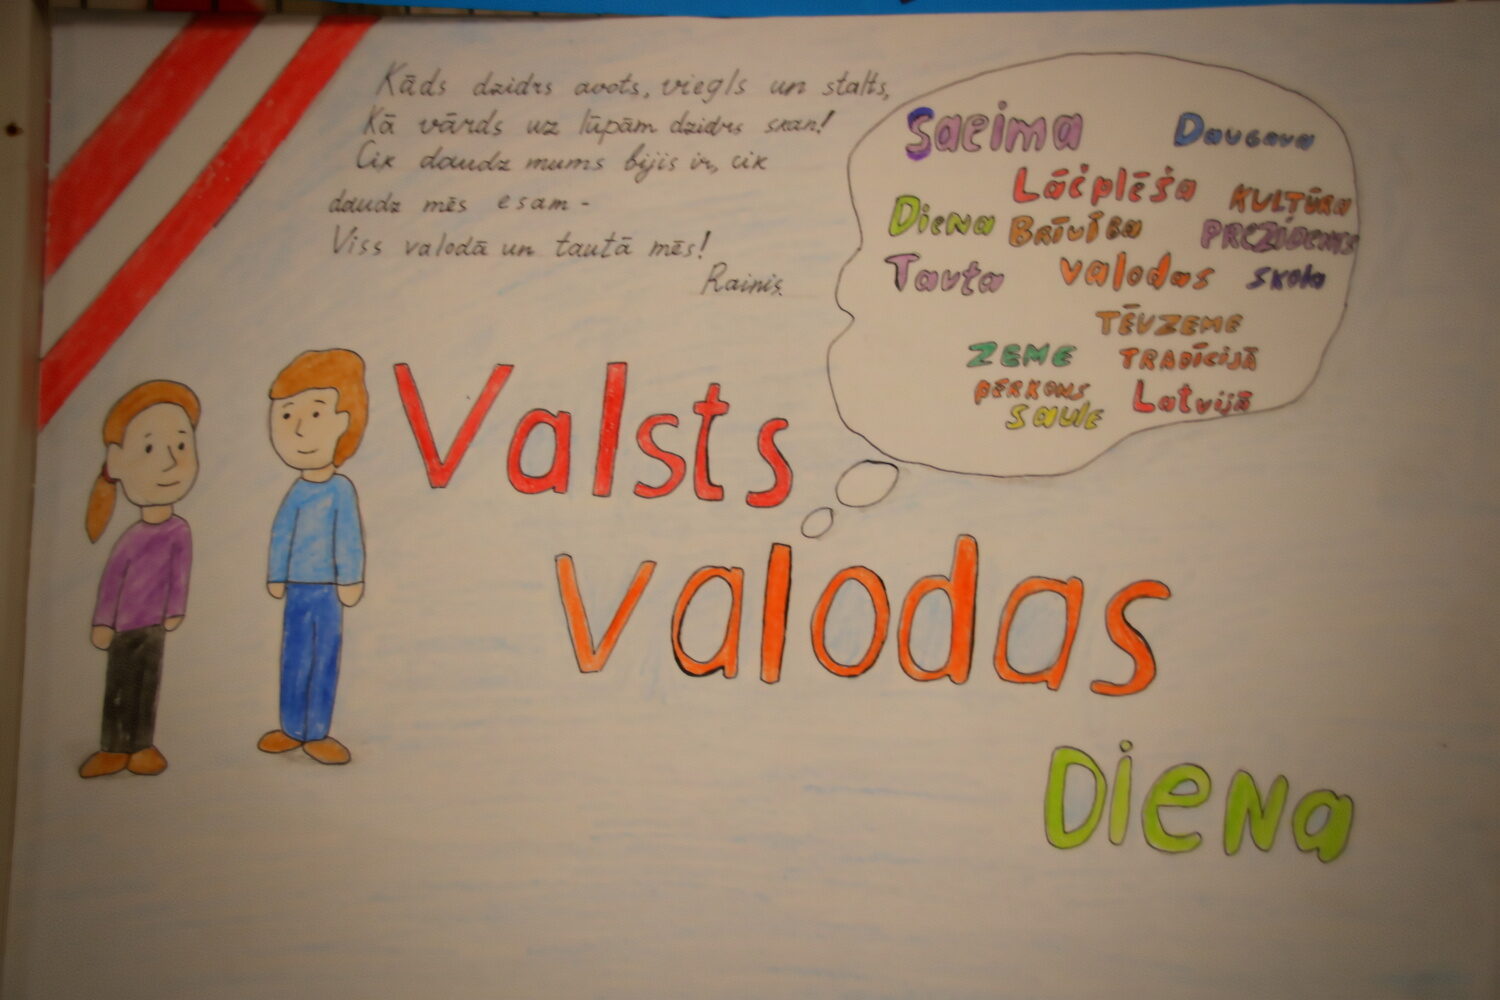 Kāds dzidrs avots, viegls un stalts,
Kā vārds uz lūpām dzidrs skan!
Cik daudz mums bijis ir, cik
daudz mēs esam -
Viss valodā un tautā mēs!
Rainis.
Saeima Daugava
Lāčplēša KULTŪRA
Diena Brīvība PREZIDENTS
Tauta valodas skola
TĒVZEME
ZEME TRADĪCIJĀ
PĒRKONS Latvijā
SAULE
Valsts
valodas
DIENA